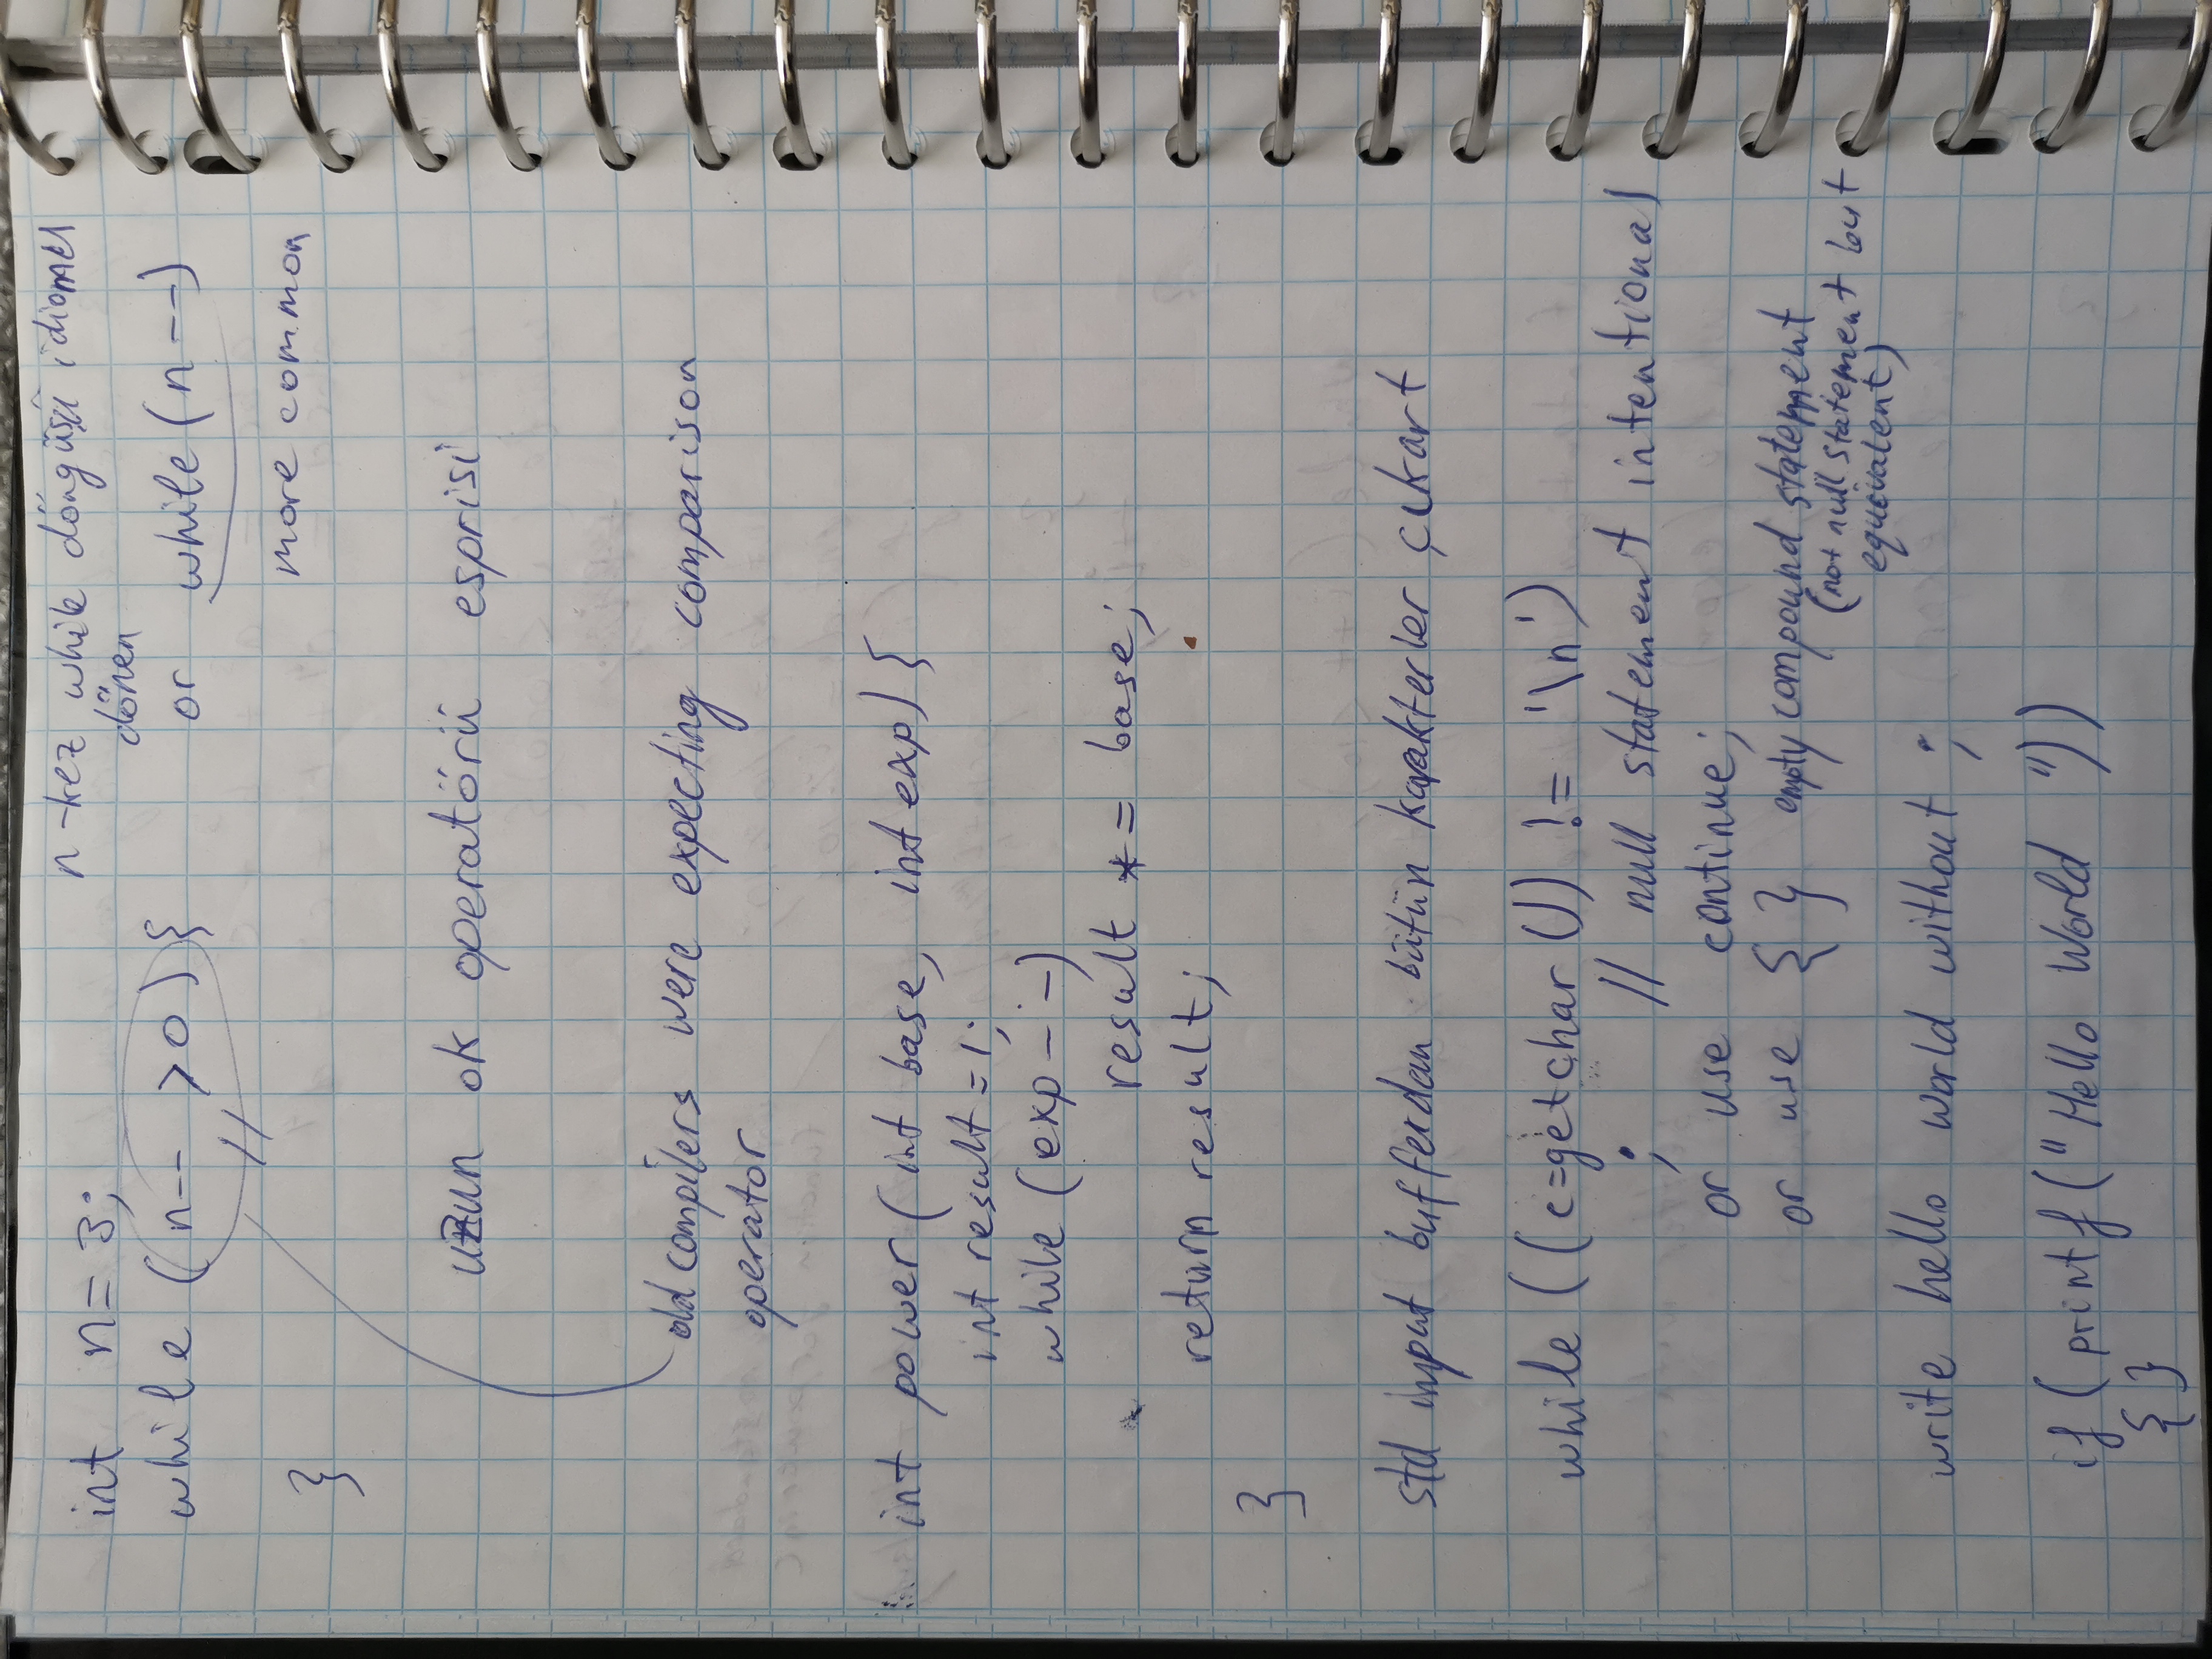 int n = 3;
n-kez while döngüsü idiomu
dönen
while (n-- >0) {
or while (n--)
//
more common
}
uzun ok operatörü esprisi
old compilers were expecting comparison
operator
int power (int base, int exp) {
int result = 1;
while (exp--)
result *= base;
return result;
}
std input bufferdan bütün karakterler çıkart
while ((c=getchar()) != '\n')
; // null statement intentional
or use continue;
or use { } empty compound statement
(not null statement but
equivalent)
write hello world without ;
if (printf("Hello World "))
{ }